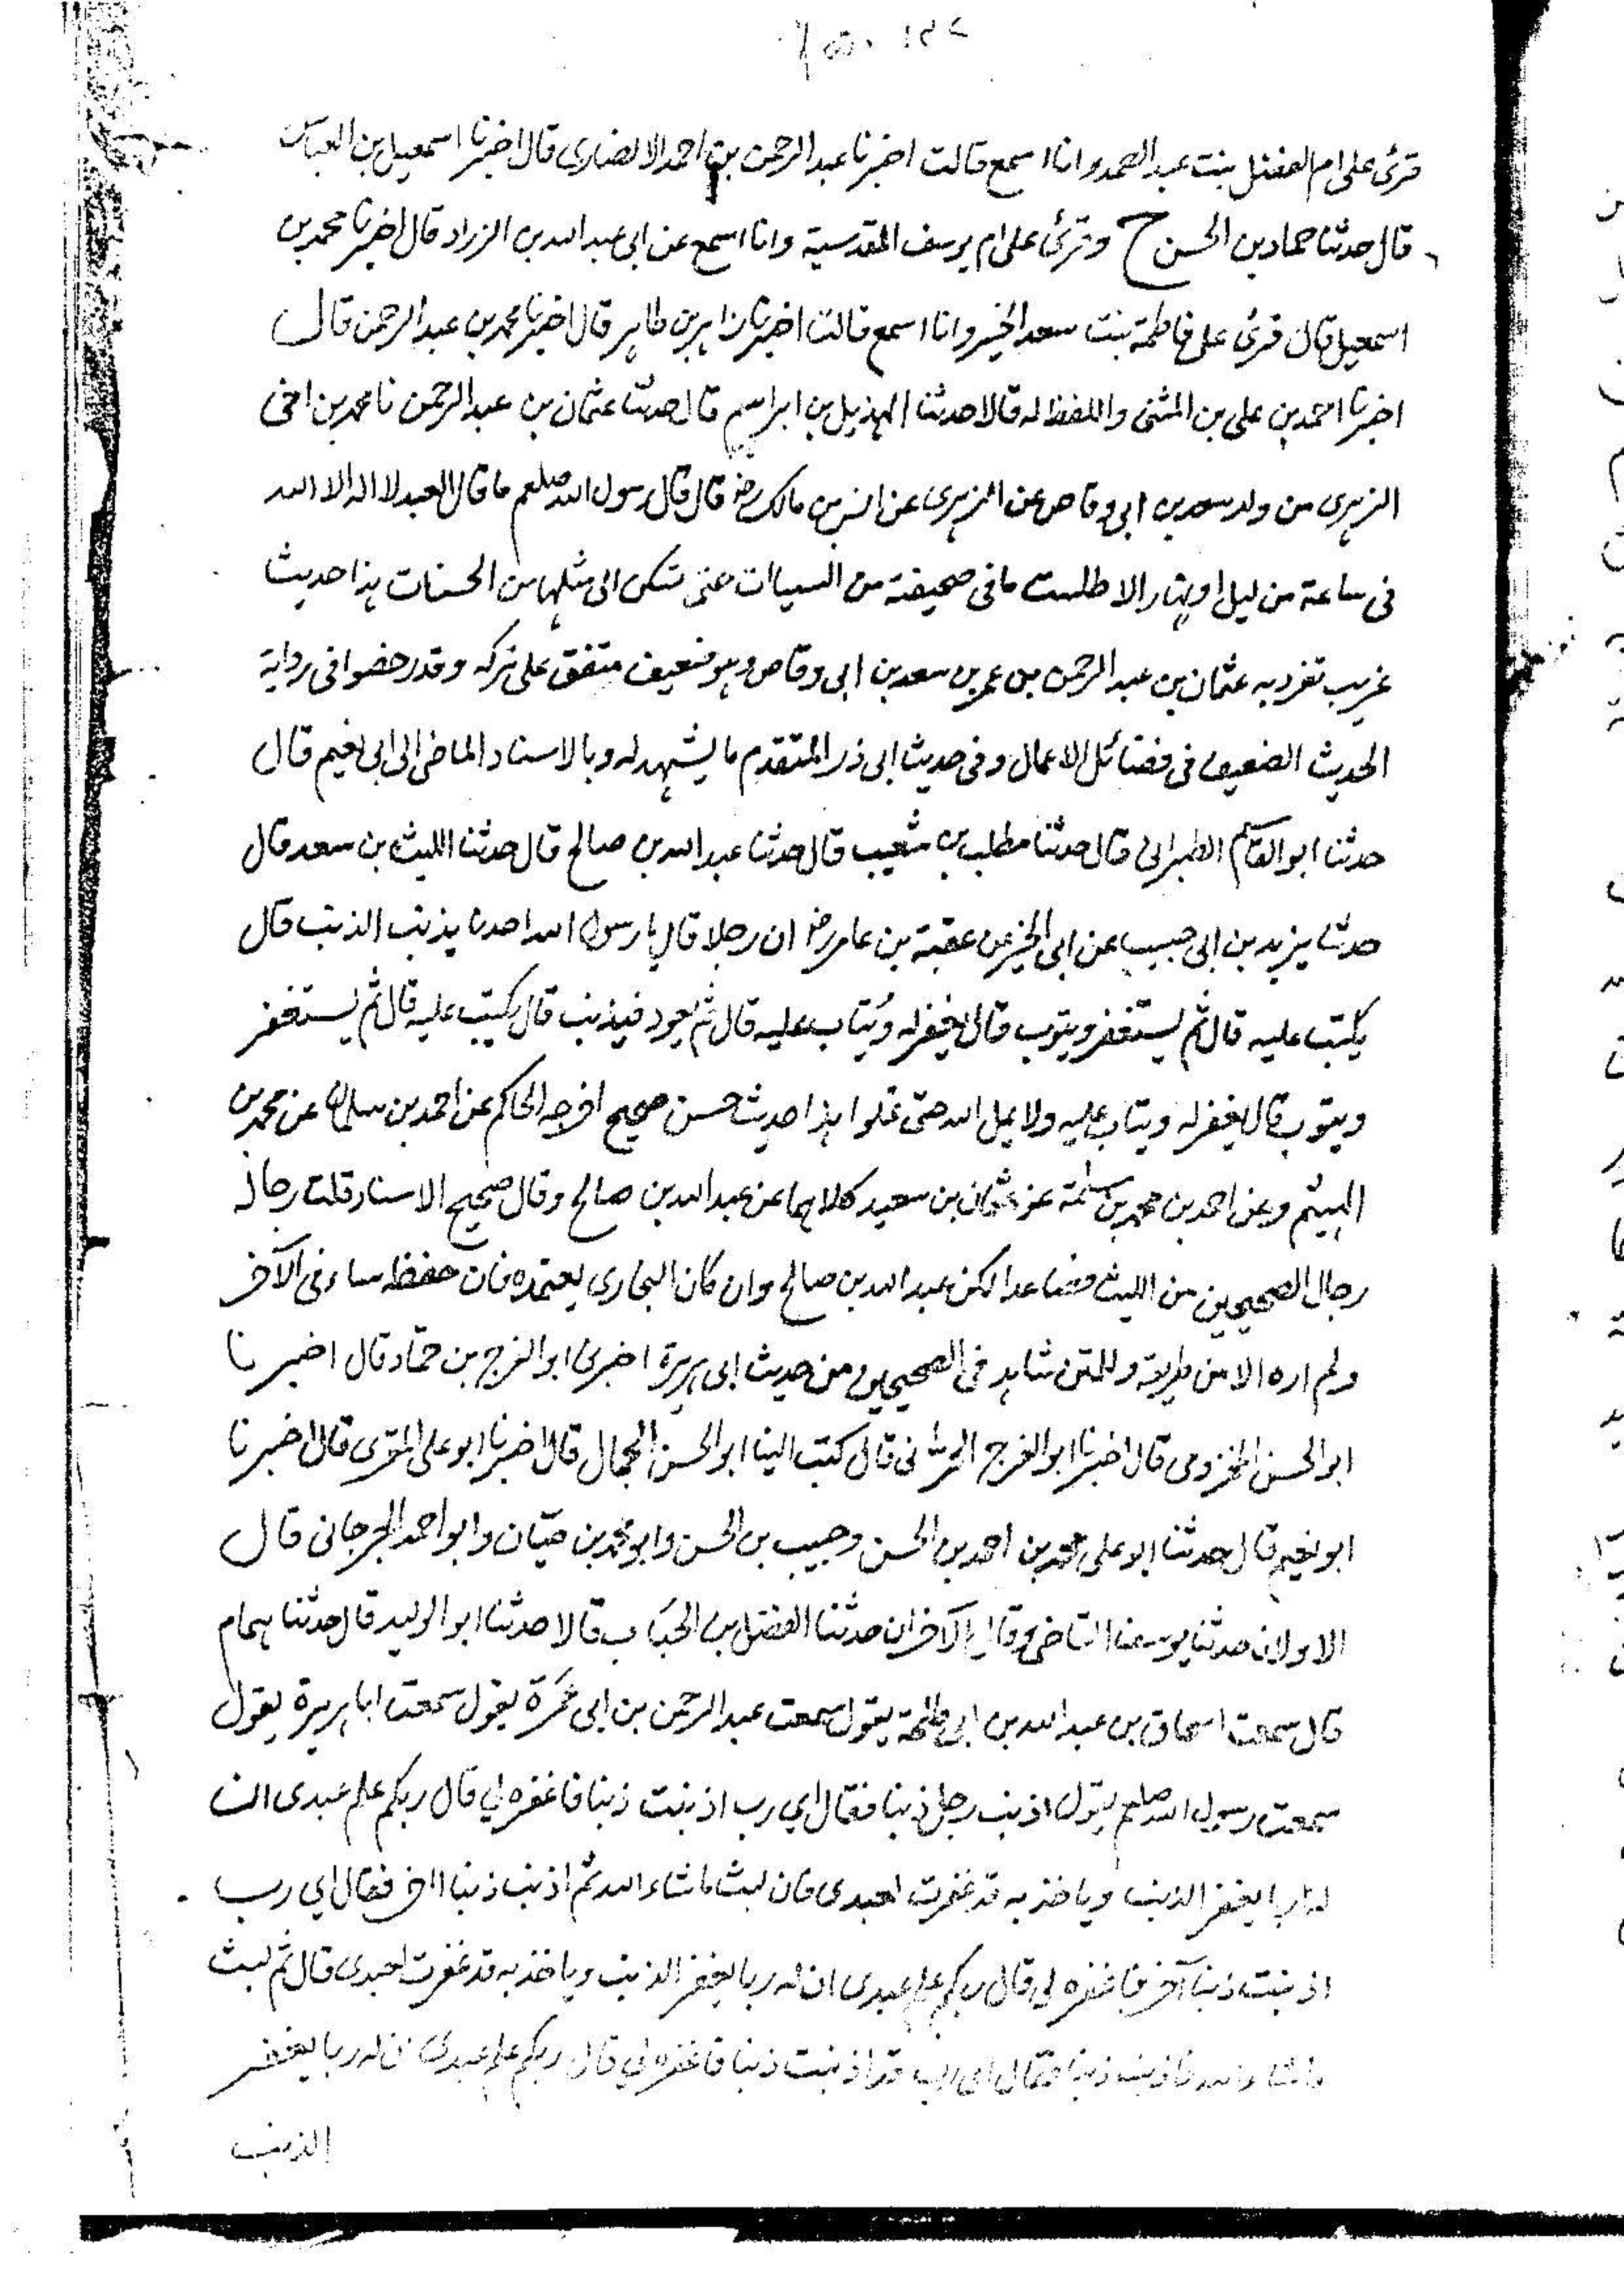 قرئ على ام الفضل بنت عبد الصمد وانا اسمع قالت اخبرنا عبد الرحمن بن احمد الانصارى قال اخبرنا اسمعيل بن العباس
قال حدثنا حماد بن الحسن ح وقرئ على ام يوسف المقدسية وانا اسمع عن ابى عبد الله بن الزراد قال اخبرنا محمد بن
اسمعيل قال قرئ على فاطمة بنت سعد الخير وانا اسمع قالت اخبرنا زاهر بن طاهر قال اخبرنا محمد بن عبد الرحمن قال
اخبرنا احمد بن على بن المثنى واللفظ له قالا حدثنا الهذيل بن ابراهيم قال حدثنا عثمان بن عبد الرحمن نا محمد بن اخى
الزهرى من ولد سعد بن ابى وقاص عن الزهرى عن انس بن مالك رض قال قال رسول الله صلعم ما قال العبد لا اله الا الله
فى ساعة من ليل او نهار الا طلست ما فى صحيفته من السيات حتى تسكن الى مثلها من الحسنات هذا حديث
غريب تفرد به عثمان بن عبد الرحمن بن عمر بن سعد بن ابى وقاص وهو ضعيف متفق على تركه وقد رخصوا فى رواية
الحديث الضعيف فى فضائل الاعمال وفى حديث ابى ذر المتقدم ما يشهد له وبالاسناد الماضى الى ابى نعيم قال
حدثنا ابو القاسم الطبرانى قال حدثنا مطلب بن شعيب قال حدثنا عبد الله بن صالح قال حدثنا الليث بن سعد قال
حدثنا يزيد بن ابى حبيب عن ابى الخير عن عقبة بن عامر رض ان رجلا قال يا رسول الله احدنا يذنب الذنب قال
يكتب عليه قال ثم يستغفر ويتوب قال يغفر له ويُتاب عليه قال ثم يعود فيذنب قال يكتب عليه قال ثم يستغفر
ويتوب قال يغفر له ويتاب عليه ولا يمل الله حتى تملوا هذا حديث حسن صحيح اخرجه الحاكم عن احمد بن سلمان عن محمد بن
الهيثم وعن احمد بن محمد بن سلمة عن عثمان بن سعيد كلاهما عن عبد الله بن صالح وقال صحيح الاسناد قلت رجاله
رجال الصحيحين من الليث فصاعدا لكن عبد الله بن صالح وان كان البخارى يعتمده فان حفظه ساء فى الآخر
ولم اره الا من طريقه وللمتن شاهد فى الصحيحين من حديث ابى هريرة اخبرنى ابو الفرج بن حمّاد قال اخبرنا
ابو الحسن المخزومى قال اخبرنا ابو الفرج الحرانى قال كتب الينا ابو الحسن الجمال قال اخبرنا ابو على المقرى قال اخبرنا
ابو نعيم قال حدثنا ابو على محمد بن احمد بن الحسن وحبيب بن الحسن وابو محمد بن حيّان وابو احمد الجرجانى قال
الاولان حدثنا يوسف القاضى وقال الآخران حدثنا الفضل بن الحبَاب قالا حدثنا ابو الوليد قال حدثنا همام
قال سمعت اسحاق بن عبد الله بن ابى طلحة يقول سمعت عبد الرحمن بن ابى عَمرَة يقول سمعت ابا هريرة يقول
سمعت رسول الله صلعم يقول اذنب رجل ذنبا فقال اي رب اذنبت ذنبا فاغفره لي قال ربكم علم عبدى ان
له ربا يغفر الذنب وياخذ به قد غفرت لعبدى فان لبث ما شاء الله ثم اذنب ذنبا اخر فقال اي رب
اذنبت ذنبا آخر فاغفره لى قال ربكم علم عبدى ان له ربا يغفر الذنب وياخذ به قد غفرت لعبدى قال ثم لبث
ما شاء الله فاذنب ذنبا فقال اى رب قد اذنبت ذنبا فاغفره لي قال ربكم علم عبدى ان له ربا يغفر
الذنب